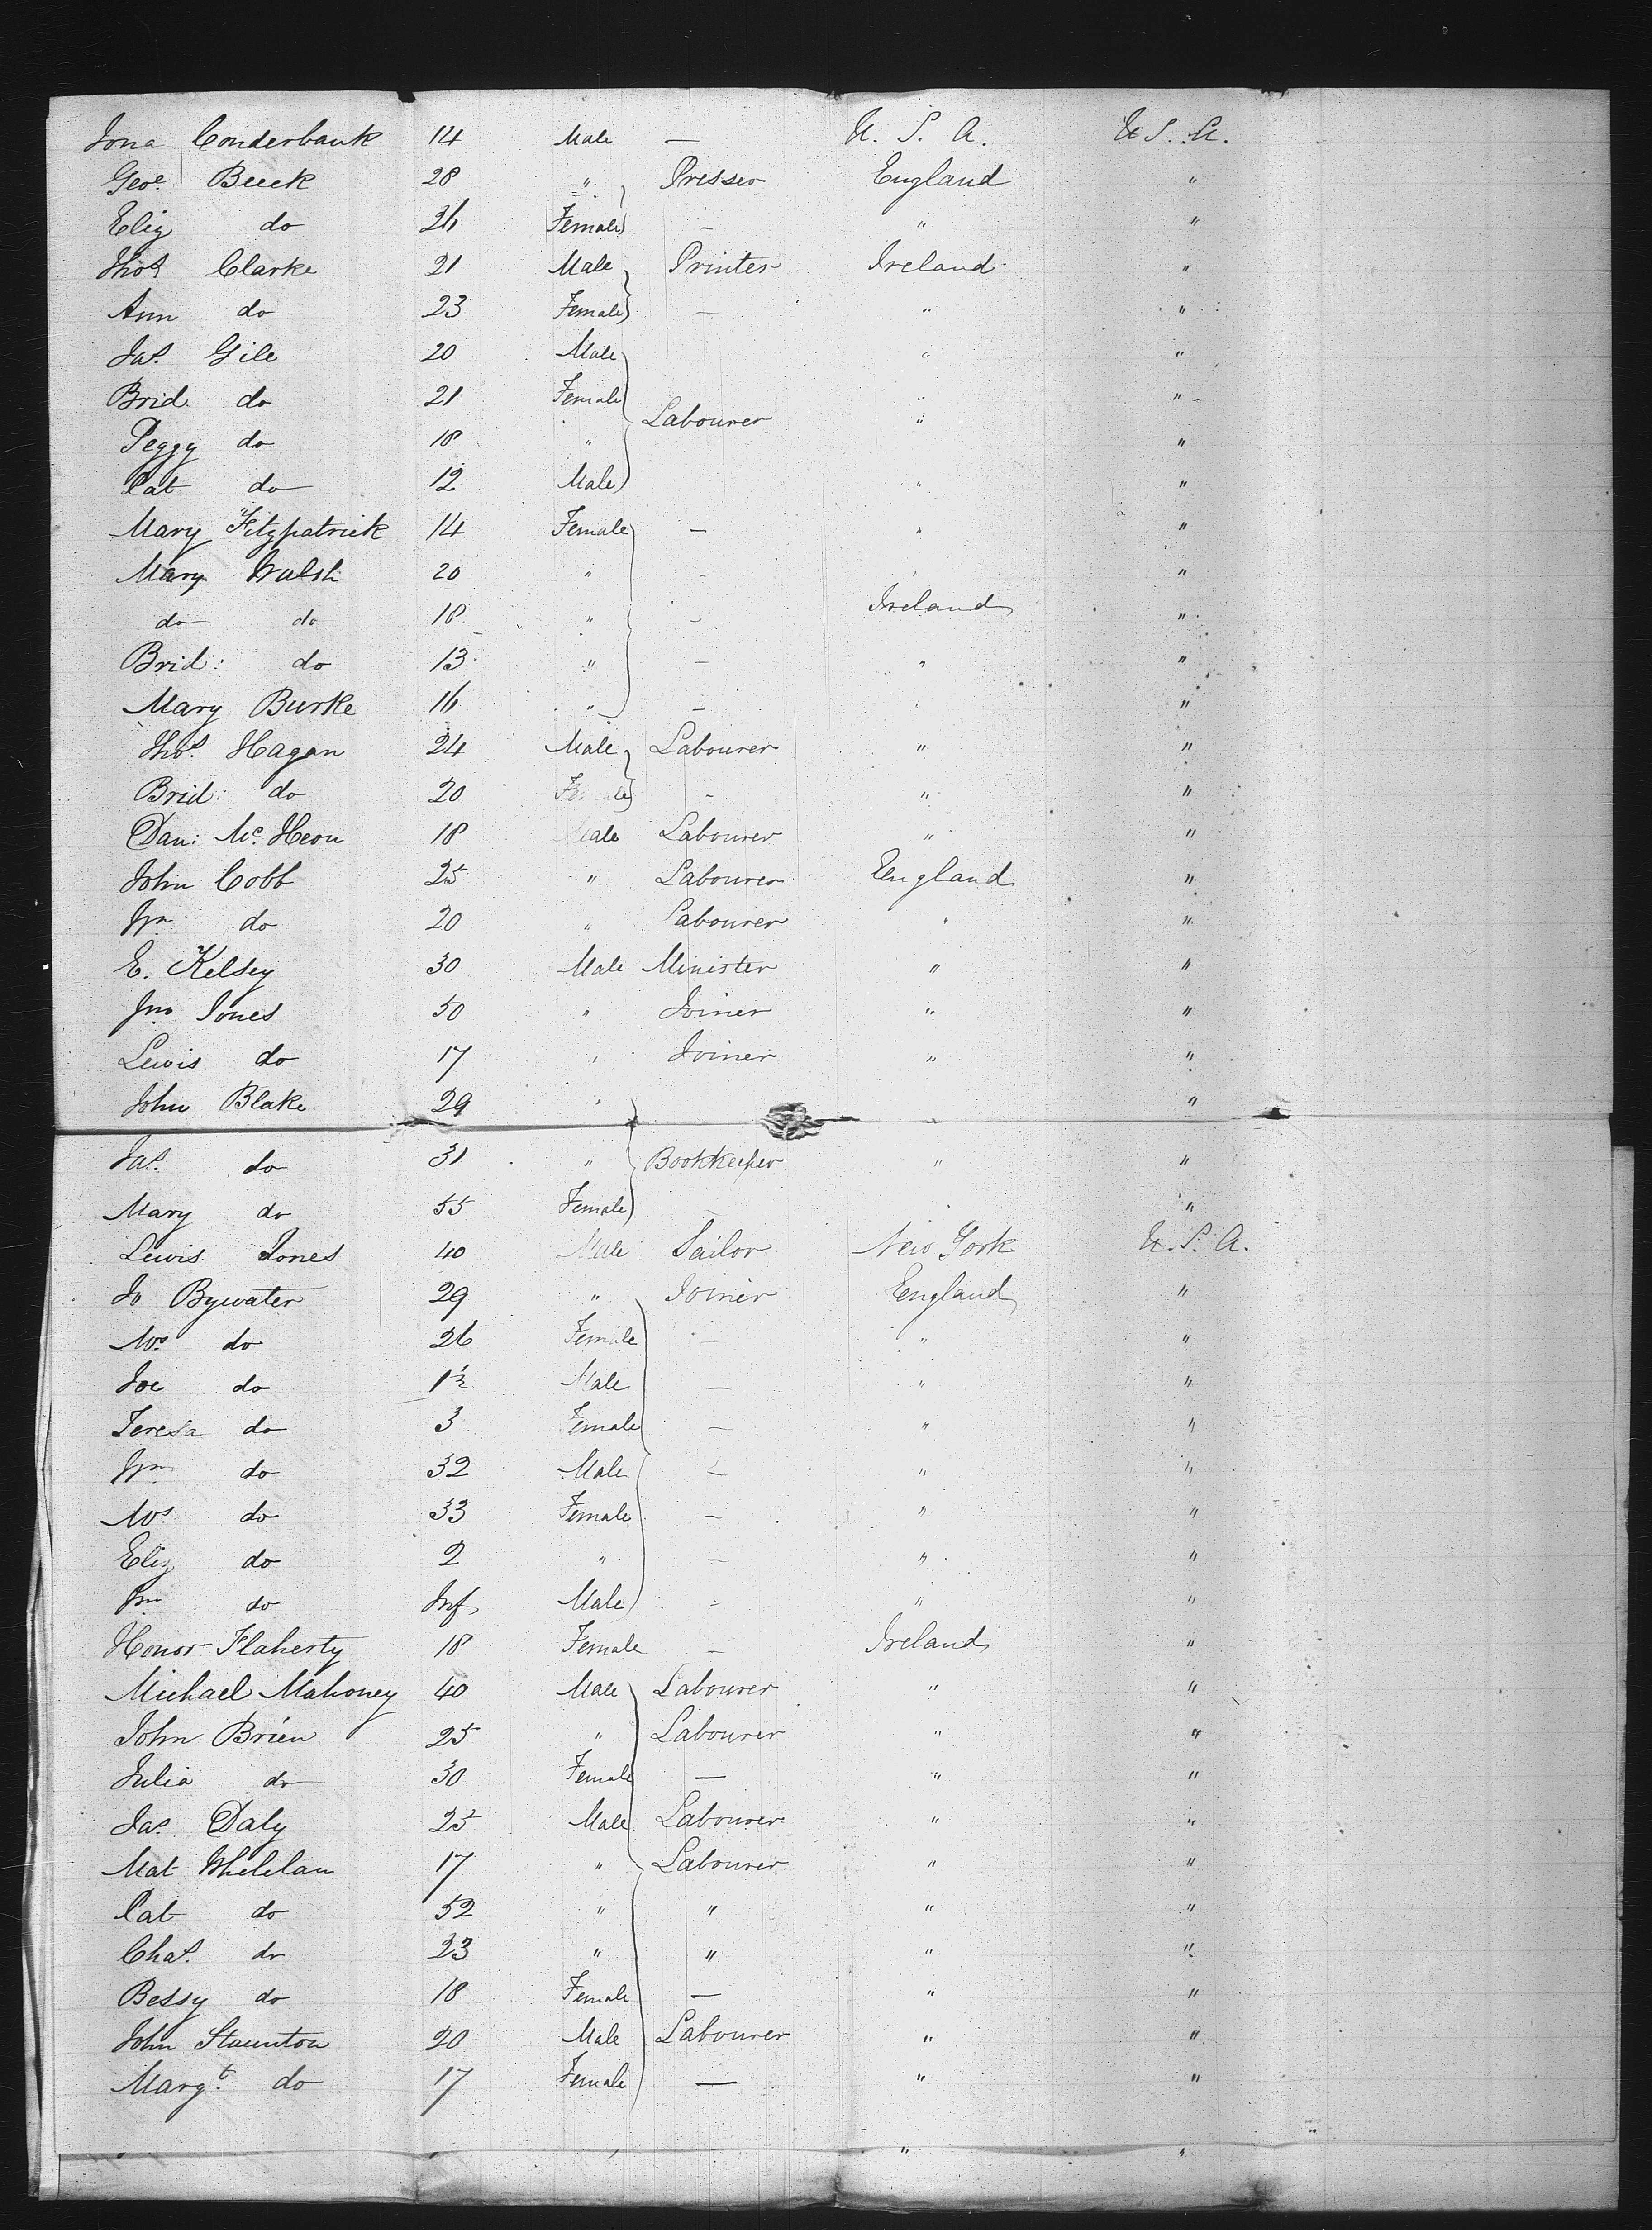 Jona Conderbank 14 Male — U. S. A. U S. A.
Geoe. Beeck 28 " Presser England "
Eliz do 26 Female — " "
Thos Clarke 21 Male Printer Ireland "
Ann do 23 Female — " "
Jas. Gile 20 Male " "
Brid. do 21 Female " "
Labourer "
Peggy do 18 " "
Pat do 12 Male " "
Mary Fitzpatrick 14 Female — " "
Mary Walsh 20 " — " "
do do 18 " — Ireland "
Brid: do 13 " — " "
Mary Burke 16 " — " "
Thos. Hagan 24 Male Labourer " "
Brid: do 20 Female — " "
Dan: Mc. Heon 18 Male Labourer " "
John Cobb 25 " Labourer England "
Wm do 20 " Labourer " "
E. Kelsey 30 Male Minister " "
Jno Jones 50 " Joiner " "
Lewis do 17 " Joiner " "
John Blake 29 " "
Jas. do 31 " Bookkeeper " "
Mary do 55 Female — " "
Lewis Jones 40 Male Sailor New York U. S. A.
Jo Bywater 29 " Joiner England "
Mrs do 26 Female — " "
Joe do 1½ Male — " "
Teresa do 3 Female — " "
Wm do 32 Male — " "
Mrs do 33 Female — " "
Eliz do 2 " — " "
Wm do Inf Male — " "
Honor Flaherty 18 Female — Ireland "
Michael Mahoney 40 Male Labourer " "
John Brien 25 " Labourer " "
Julia do 30 Female — " "
Jas. Daly 25 Male Labourer " "
Mat Whelelan 17 " Labourer " "
Pat do 52 " " " "
Chas. do 23 " " " "
Bessy do 18 Female — " "
John Staunton 20 Male Labourer " "
Margt. do 17 Female — " "
" "